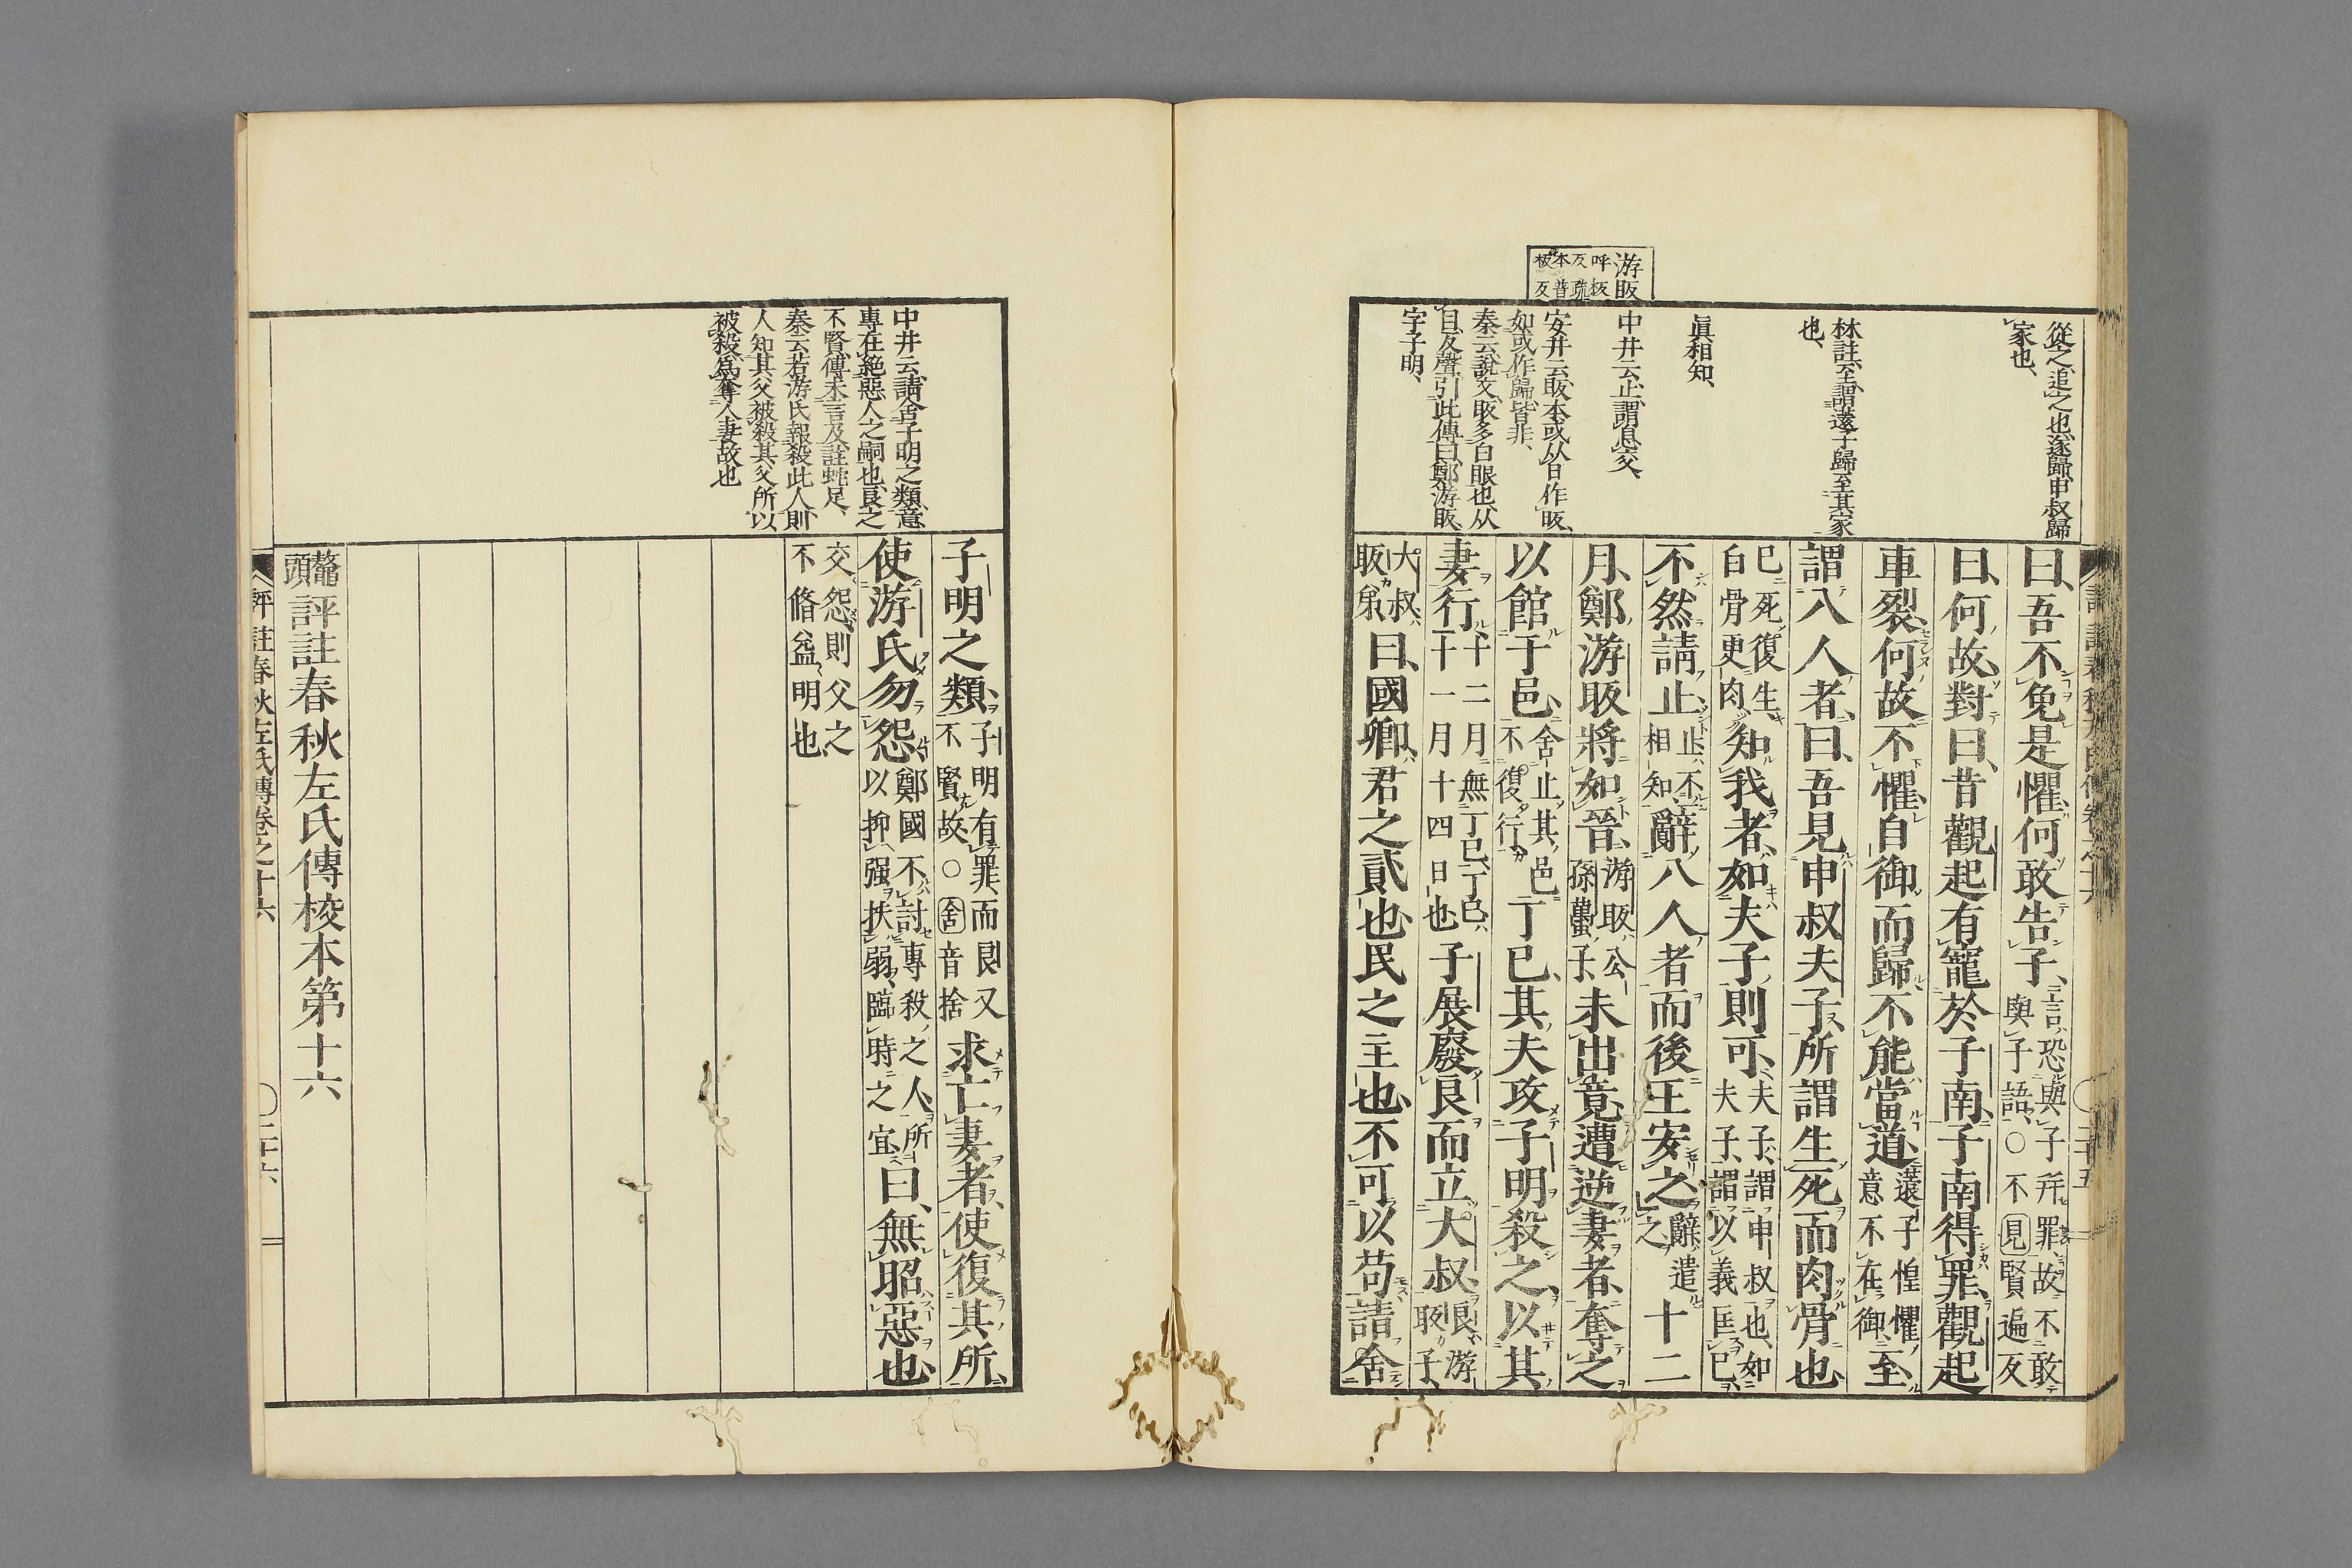 從之追之也遂歸申叔歸
家也、
林註至謂薳子歸至其家
也、
眞相知、
中井云止謂息交、
安井云眅本或从日作昄、
如或作歸皆非、
秦云說文眅多白眼也从
目反聲引此傳曰鄭游眅
字子明、
游眅
呼板
反疏
本普
板反
曰、吾不免是懼、何敢告子、言恐與子幷罪、故不敢
與子語、○不見賢遍反
曰、何故、對曰、昔觀起有寵於子南、子南得罪、觀起
車裂、何故不懼、自御而歸、不能當道、薳子惶懼
意不在御、至
謂八人者、曰、吾見申叔夫子、所謂生死而肉骨也、
已死復生、
白骨更肉、知我者、如夫子則可、夫子、謂申叔也、如
夫子、謂以義匡已、
不然請止、止、不
相知、辭八人者而後王安之、辭遣
之、十二
月、鄭游眅將如晉、游眅、公
孫蠆子、未出竟、遭逆妻者、奪之
以館于邑、舍止其邑
不復行、丁巳、其夫攻子明殺之、以其
妻行、十二月無丁巳、丁巳、
十一月十四日也、子展廢良而立大叔、良、游
眅子、
大叔、
眅弟、曰、國卿、君之貳也、民之主也、不可以苟、請舍
評註春秋左氏傳卷之十六
○二十五
中井云請舍子明之類意
專在絕惡人之嗣也良之
不賢傳未言及註蛇足、
秦云若游氏報殺此人則
人知其父被殺其父所以
被殺爲奪人妻故也
子明之類、子明有罪、而良又
不賢故○舍音捨求亡妻者、使復其所、
使游氏勿怨、鄭國不討專殺之人、所
以抑强扶弱、臨時之宜、曰、無昭惡也、
交怨、則父之
不脩益明也、
鼇頭評註春秋左氏傳校本第十六
評註春秋左氏傳卷之十六
○二十六